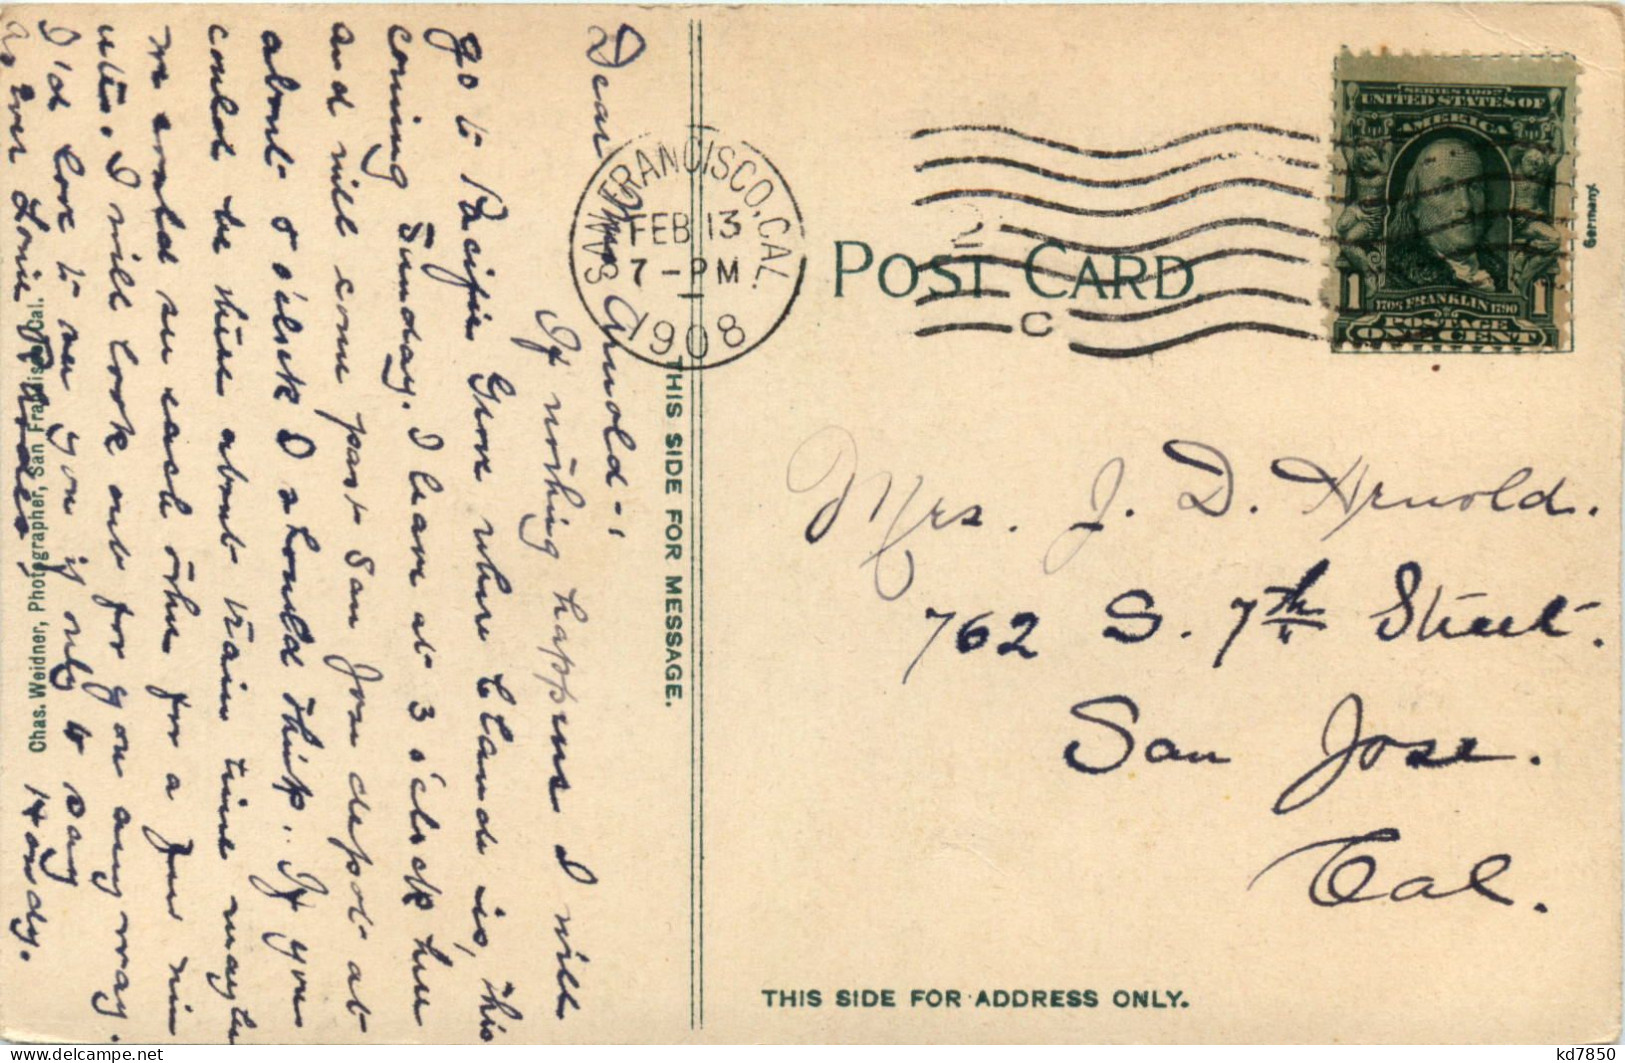 Dear Mrs Arnold-,
If nothing happens I will
go to Pacific Grove where Claude is, this
coming Sunday. I leave at 3 o'clock here
and will come past San Jose depot at
about 5 o'clock I should think. If you
could be there about train time maybe
we could see each other for a few min
utes. I will look out for you any way.
I'd love to see you if only to say Howdy.
as ever Lorie Rhodes
Chas. Weidner, Photographer, San Francisco, Cal.
THIS SIDE FOR MESSAGE.
SAN FRANCISCO, CAL.
FEB 13
7 - PM
1908
POST CARD
2
C
SERIES 1902
UNITED STATES OF
AMERICA
1706 FRANKLIN 1790
1 1
POSTAGE
ONE CENT
Germany.
Mrs. J. D. Arnold.
762 S. 7th Street.
San Jose.
Cal.
THIS SIDE FOR ADDRESS ONLY.
kd7850